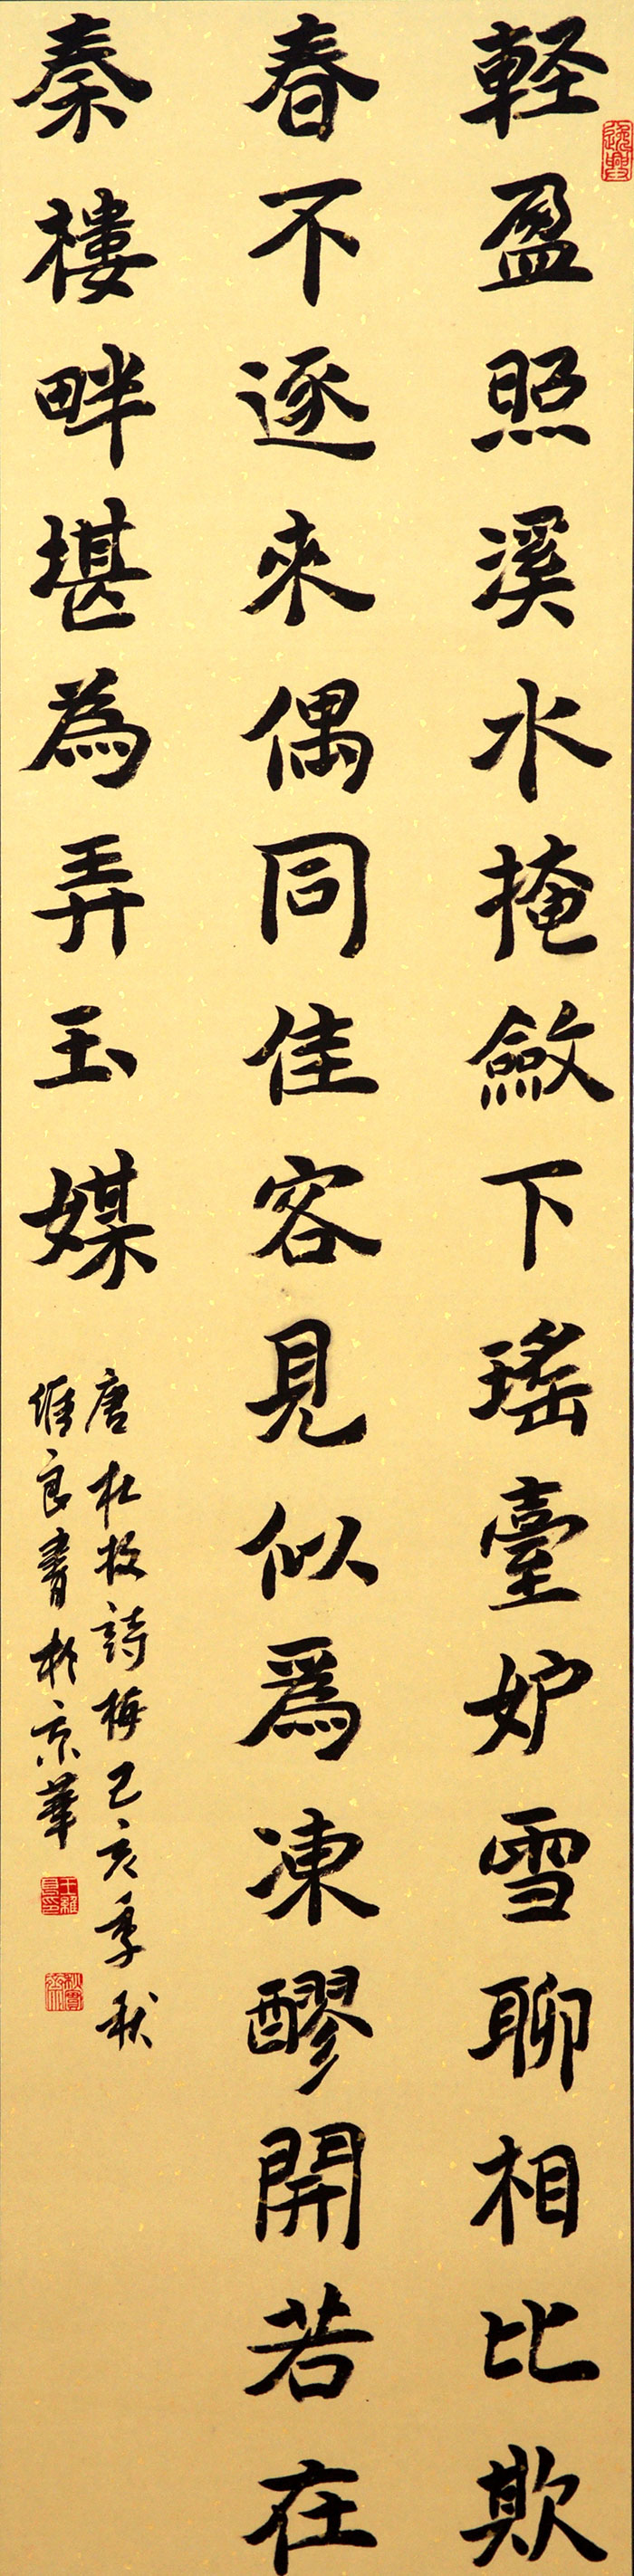 軽盈照溪水掩斂下瑤臺妒雪聊相比欺
春不逐來偶同佳客見似爲凍醪開若在
秦樓畔堪為弄玉媒
唐杜牧詩梅己亥季秋
維良書於京華